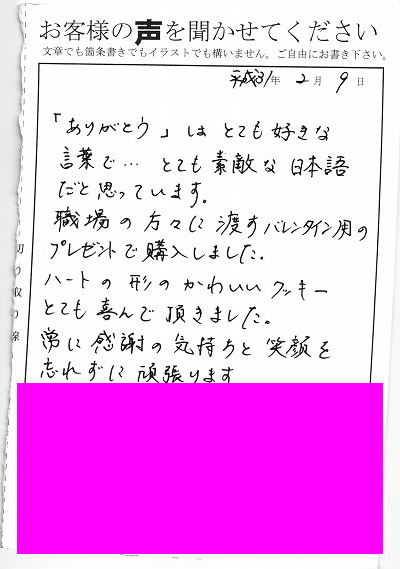 お客様の声を聞かせてください
文章でも箇条書きでもイラストでも構いません。ご自由にお書き下さい。
平成31年 2月 9日
「ありがとう」は とても好きな
言葉で… とても 素敵な 日本語
だと思っています。
職場の方々に渡すバレンタイン用の
プレゼントで購入しました。
ハートの形のかわいいクッキー
とても喜んで頂きました。
常に感謝の気持ちと笑顔を
忘れずに頑張ります
切り取り線